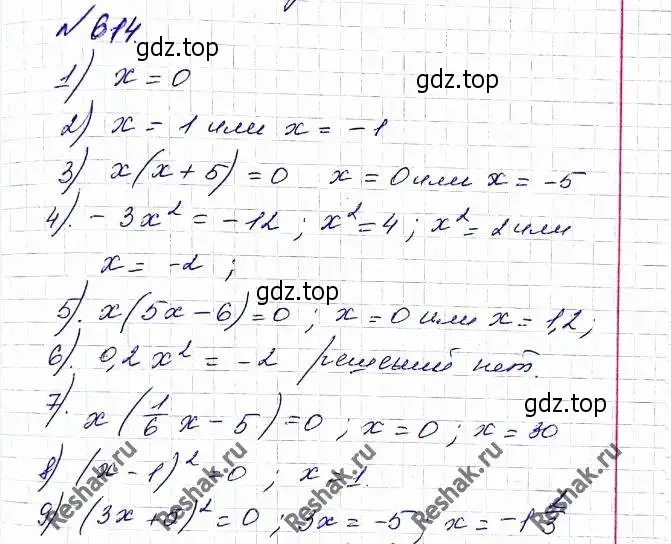 № 614.
1) x = 0
2) x = 1 или x = -1
3) x(x+5) = 0   x = 0 или x = -5
4). -3x² = -12 ; x² = 4 ; x² = 2 или
x = -2 ;
5). x(5x-6) = 0 ; x = 0 или x = 1,2 ;
6). 0,2x² = -2 решений нет.
7). x(1/6 x - 5) = 0 ; x = 0 ; x = 30
8) (x-1)² = 0 ; x = 1.
9) (3x+5)² = 0 ; 3x = -5 ; x = -1
gdz.top
gdz.top
gdz.top
gdz.top
gdz.top
Reshak.ru
Reshak.ru
Reshak.ru
Reshak.ru
Reshak.ru